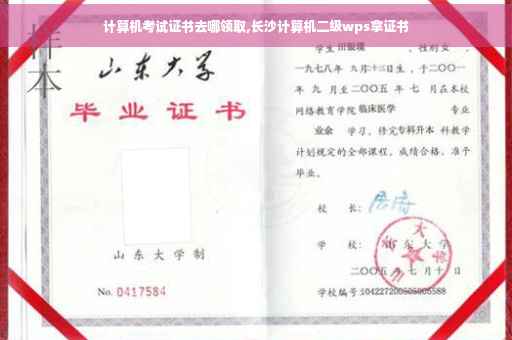 计算机考试证书去哪领取,长沙计算机二级wps拿证书
样本
山东大学
毕业证书
山东大学制
No. 0417584
学生 田银瑛 ，性别女 ，
一九七八年 九月十三日生，于二〇〇一
年 九 月至二〇〇五 年 七 月在本校
网络教育学院 临床医学 专业
业余 学习，修完专科升本 科教学
计划规定的全部课程，成绩合格，准予
毕业。
校 长：
学 校：山东大学
二〇〇五年 七月十 日
学校编号:104227200505005588